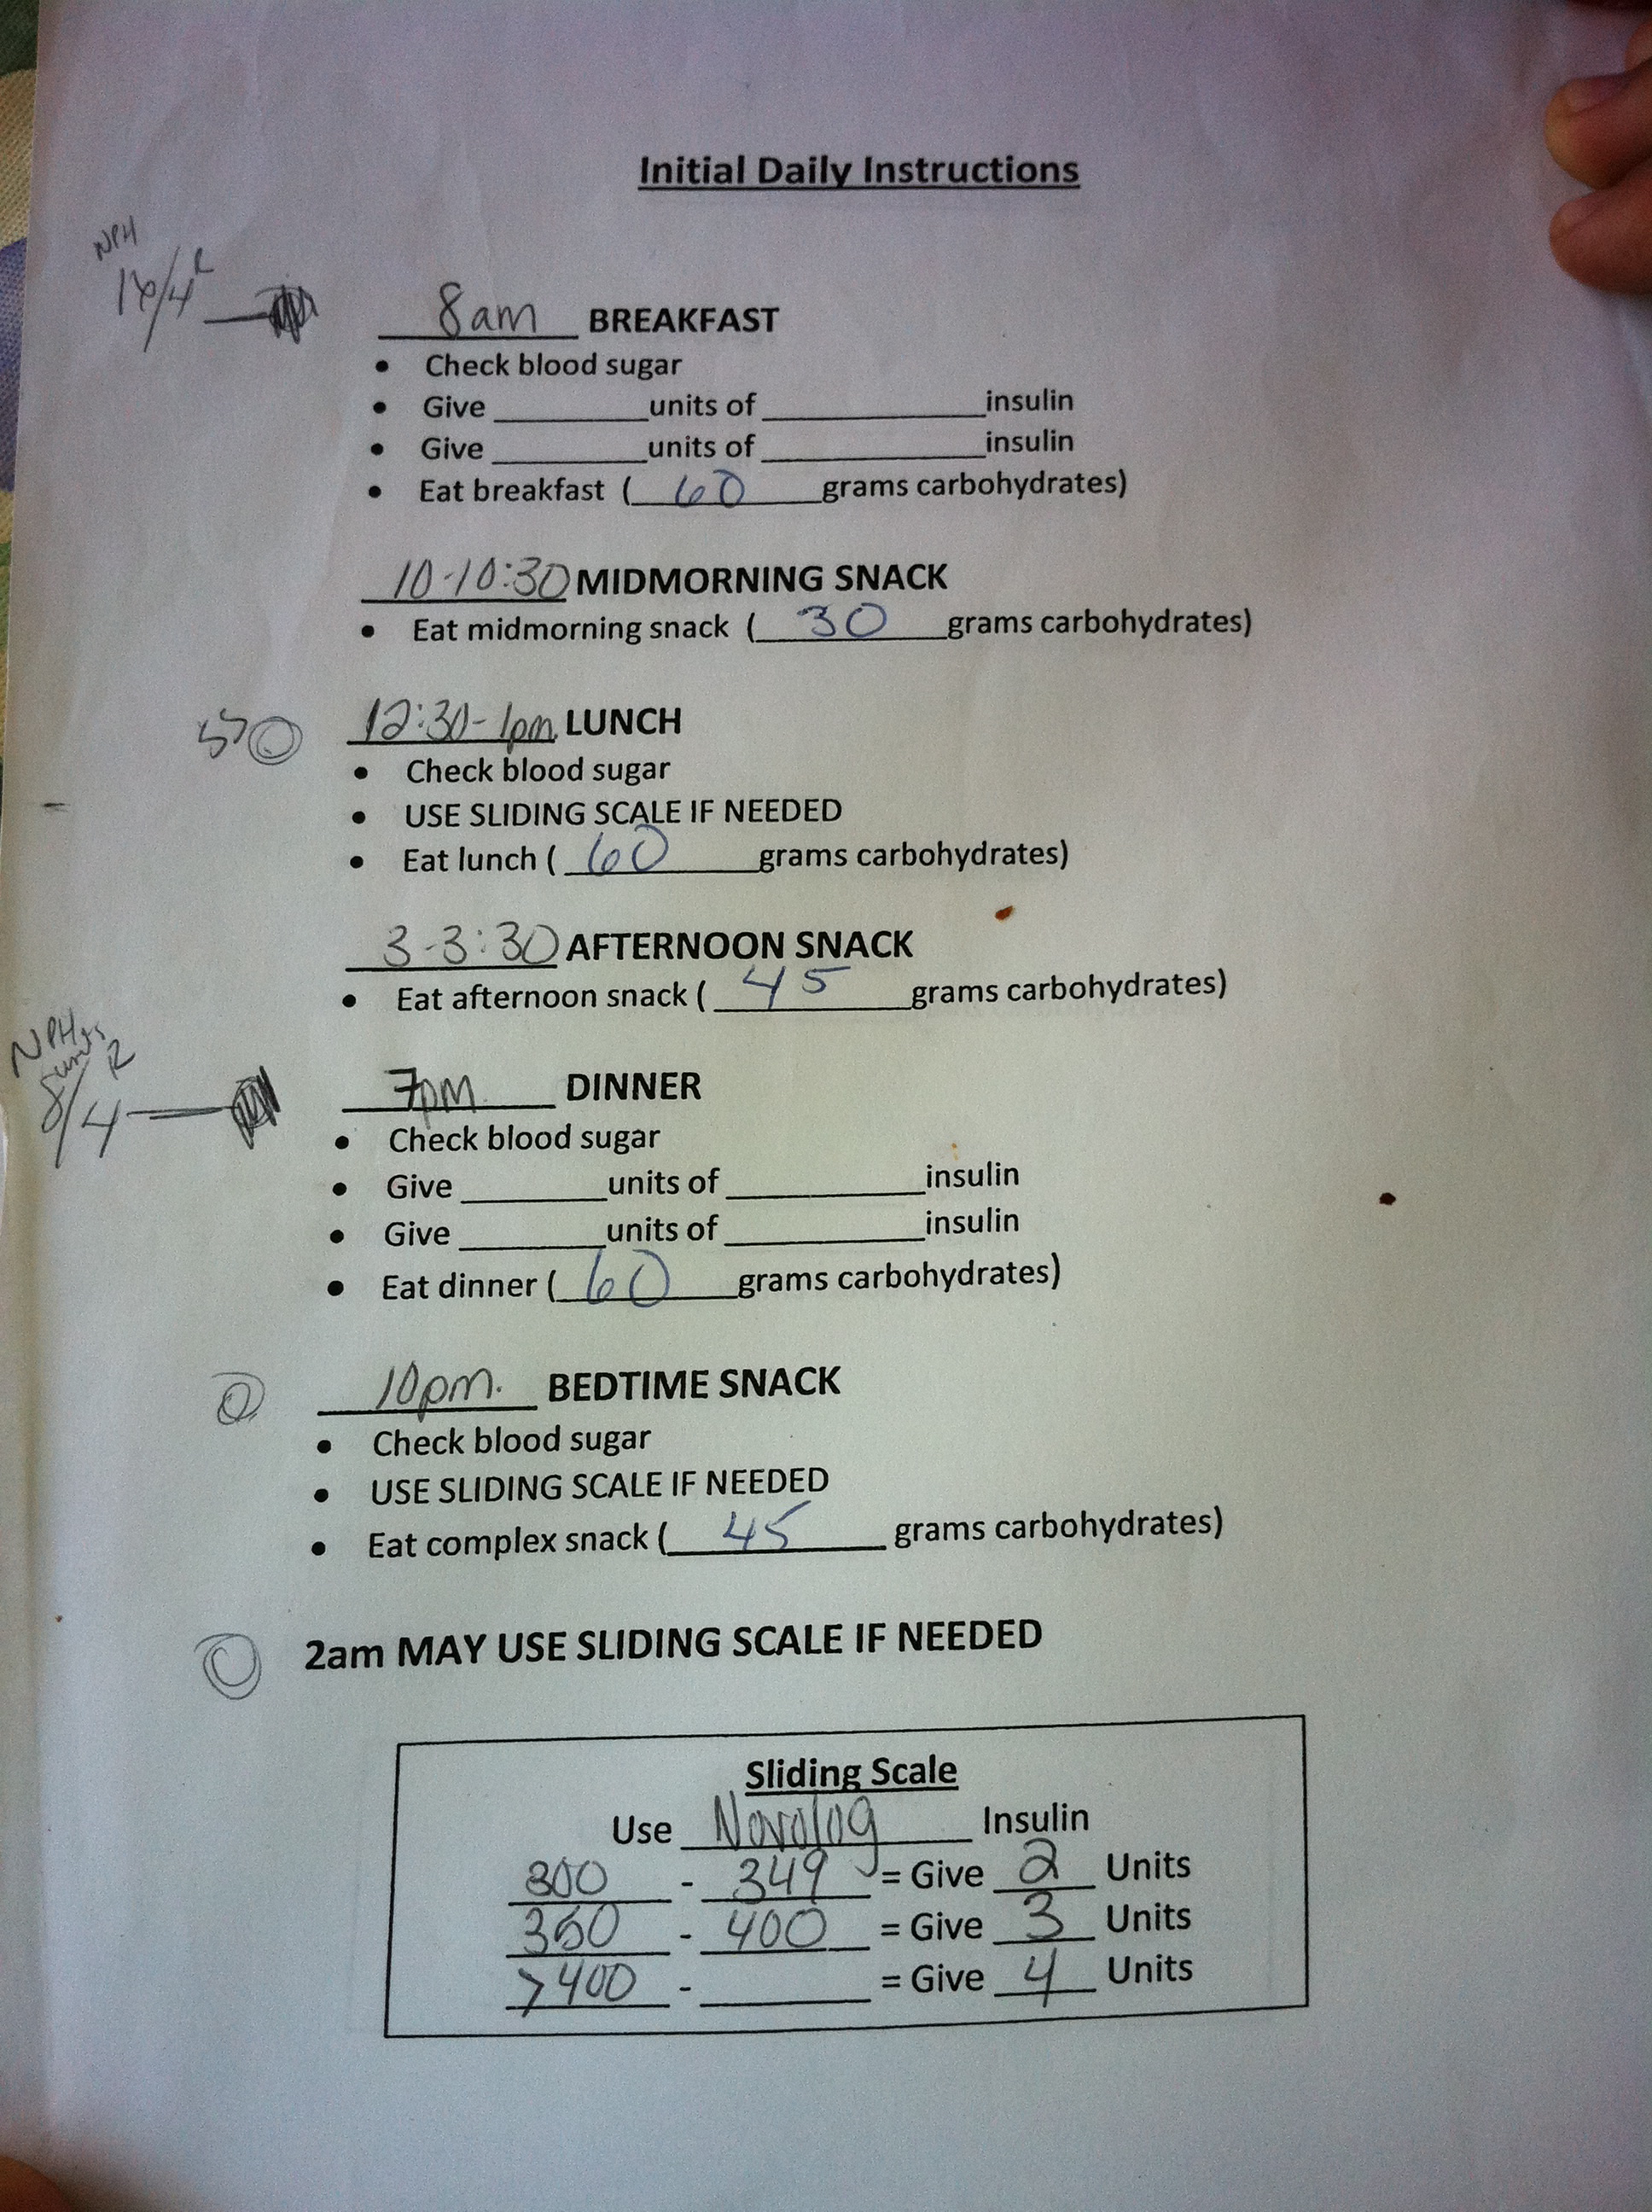 Initial Daily Instructions
NPH
/4 R
8am BREAKFAST
• Check blood sugar
• Give ________ units of ____________ insulin
• Give ________ units of ____________ insulin
• Eat breakfast (60 grams carbohydrates)
10-10:30 MIDMORNING SNACK
• Eat midmorning snack (30 grams carbohydrates)
12:30-1pm LUNCH
• Check blood sugar
• USE SLIDING SCALE IF NEEDED
• Eat lunch (60 grams carbohydrates)
3-3:30 AFTERNOON SNACK
• Eat afternoon snack (45 grams carbohydrates)
NPH
8 units/4 R
7pm DINNER
• Check blood sugar
• Give ________ units of ____________ insulin
• Give ________ units of ____________ insulin
• Eat dinner (60 grams carbohydrates)
10pm. BEDTIME SNACK
• Check blood sugar
• USE SLIDING SCALE IF NEEDED
• Eat complex snack (45 grams carbohydrates)
2am MAY USE SLIDING SCALE IF NEEDED
Sliding Scale
Use Novolog Insulin
300 - 349 = Give 2 Units
350 - 400 = Give 3 Units
>400 - ________ = Give 4 Units